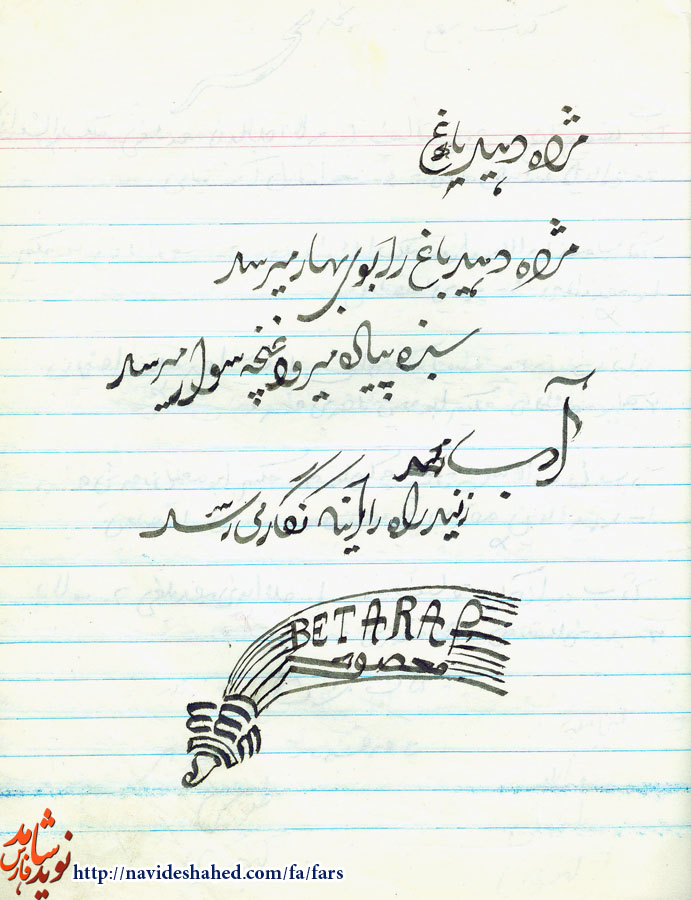 مژده دهید باغ
مژده دهید باغ را بوی بهار میرسد
سبزه پیاده میرود غنچه سوار میرسد
آب
زنید راه را که نگار می رسد
BETARAF
معصومه
نوید شاهد
فارس
http://navideshahed.com/fa/fars